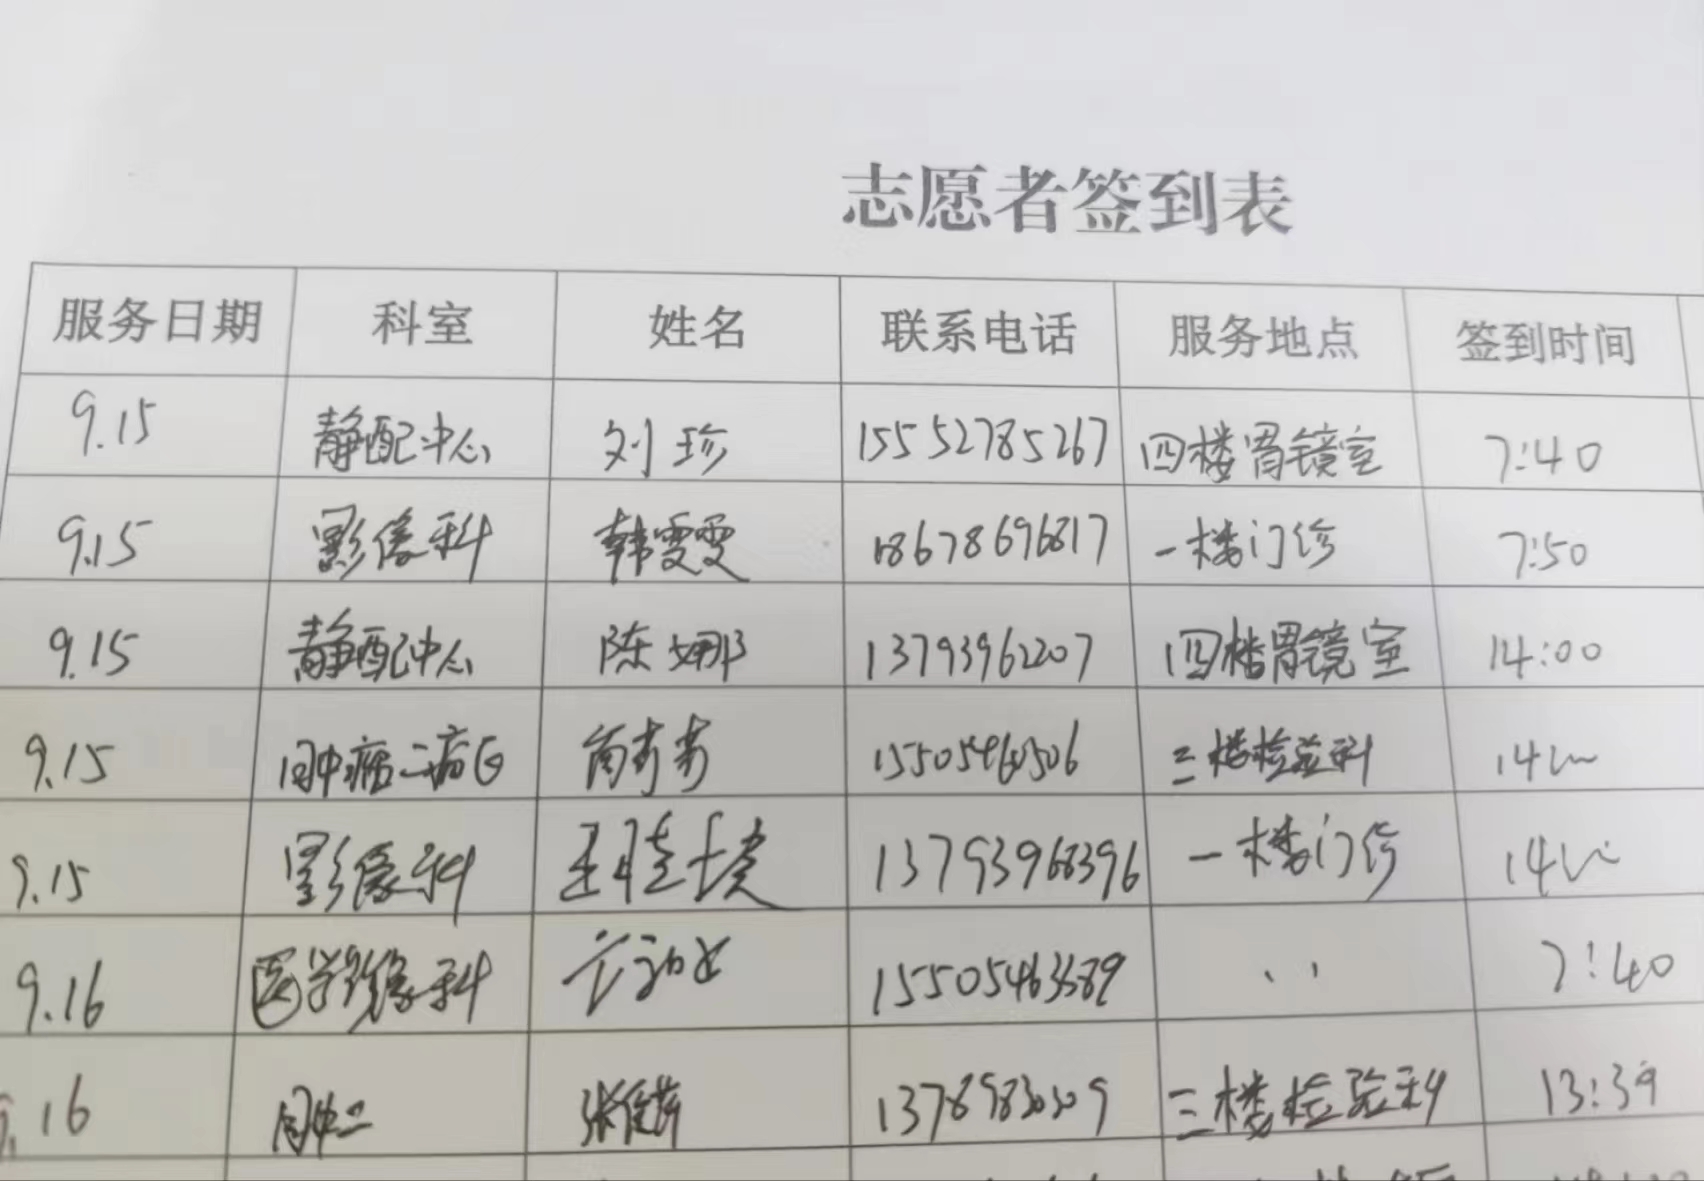 志愿者签到表
服务日期 科室 姓名 联系电话 服务地点 签到时间
9.15 静配中心 刘珍 15552785267 四楼胃镜室 7:40
9.15 影像科 韩雯雯 18678696817 一楼门诊 7:50
9.15 静配中心 陈娜 13793962207 四楼胃镜室 14:00
9.15 肿瘤二病区 三楼检验科
9.15 影像科 13793968396 一楼门诊
9.16 医学影像科 7:40
9.16 三楼检验科 13:39